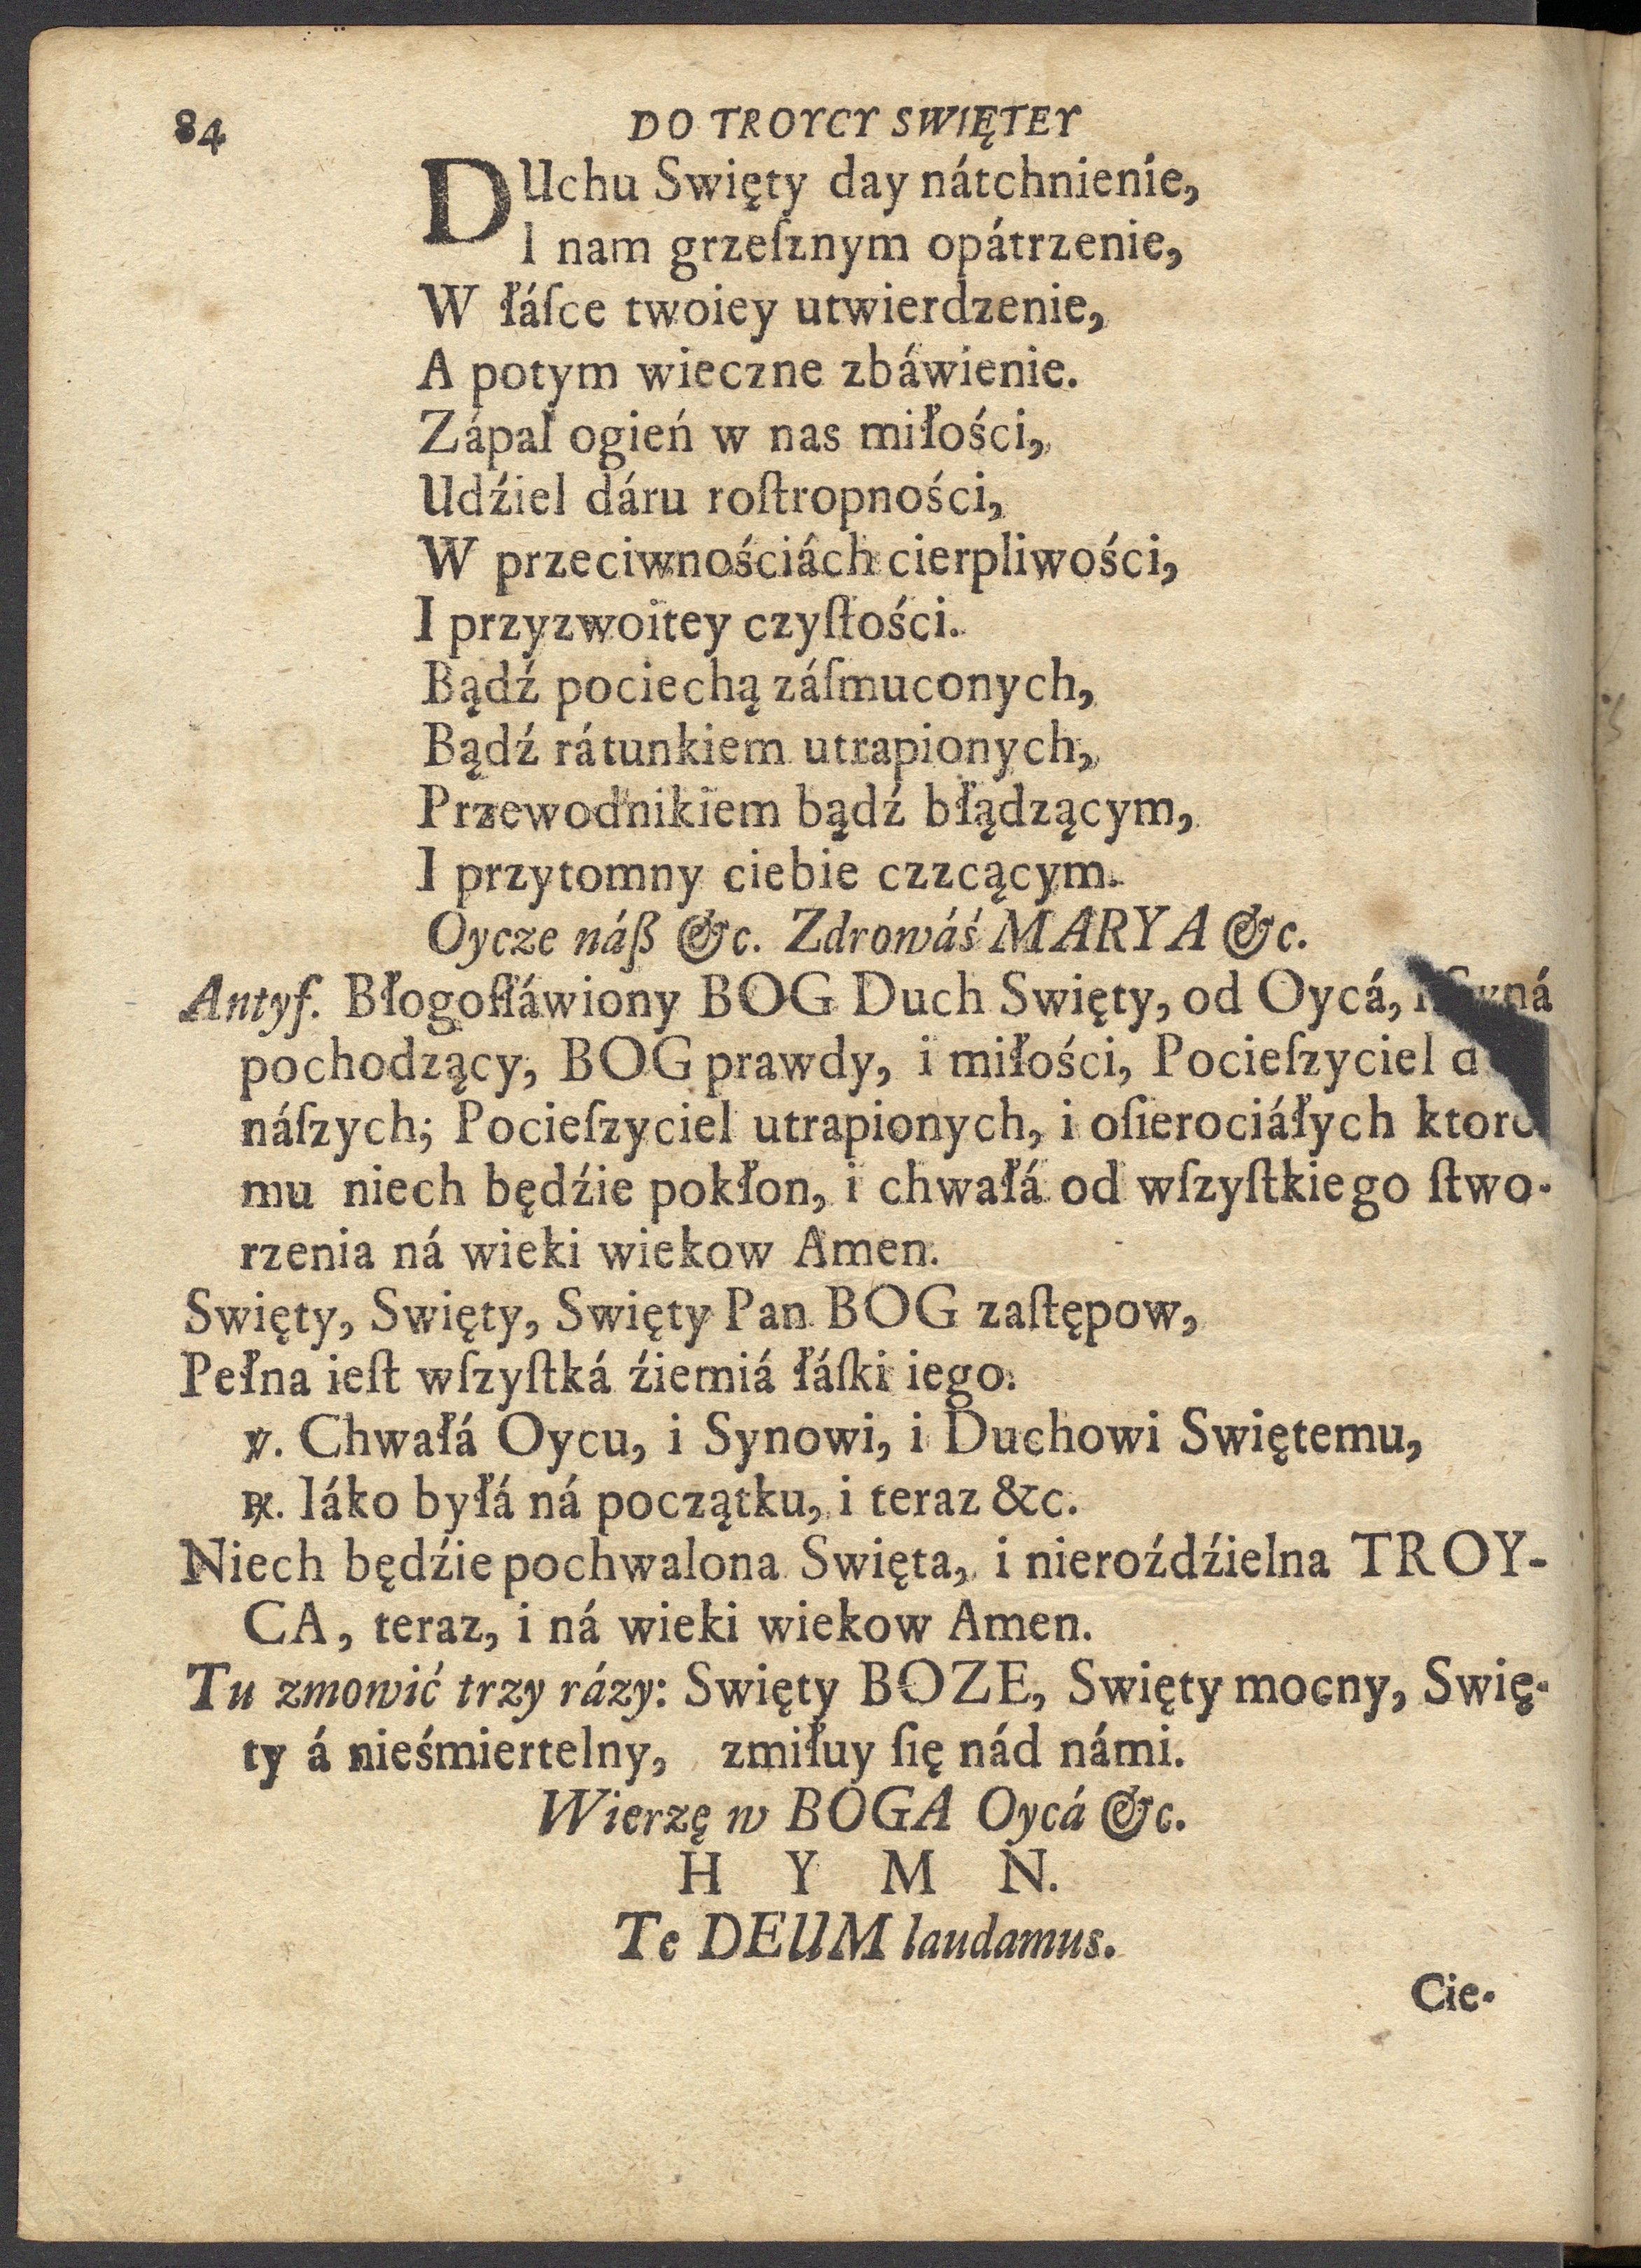 84 DO TROYCY SWIĘTEY
DUchu Swięty day nátchnienie,
I nam grzeſznym opátrzenie,
W łáſce twoiey utwierdzenie,
A potym wieczne zbáwienie.
Zápal ogień w nas miłości,
Udźiel dáru roſtropności,
W przeciwnościách cierpliwości,
I przyzwoitey czyſtości.
Bądź pociechą záſmuconych,
Bądź rátunkiem utrapionych,
Przewodnikiem bądź błądzącym,
I przytomny ciebie czzcącym.
Oycze náß &c. Zdrowáś MARYA &c.
Antyf. Błogoſłáwiony BOG Duch Swięty, od Oycá,
pochodzący, BOG prawdy, i miłości, Pocieſzyciel
náſzych; Pocieſzyciel utrapionych, i oſierociáłych ktore
mu niech będźie pokłon, i chwałá od wſzyſtkiego ſtwo-
rzenia ná wieki wiekow Amen.
Swięty, Swięty, Swięty Pan BOG zaſtępow,
Pełna ieſt wſzyſtká źiemiá łáſki iego.
℣. Chwałá Oycu, i Synowi, i Duchowi Swiętemu,
℟. Iáko byłá ná początku, i teraz &c.
Niech będźie pochwalona Swięta, i nieroźdźielna TROY-
CA, teraz, i ná wieki wiekow Amen.
Tu zmowić trzy rázy: Swięty BOZE, Swięty mocny, Swię-
ty á nieśmiertelny, zmiłuy ſię nád námi.
Wierzę w BOGA Oycá &c.
H Y M N.
Te DEUM laudamus.
Cie-